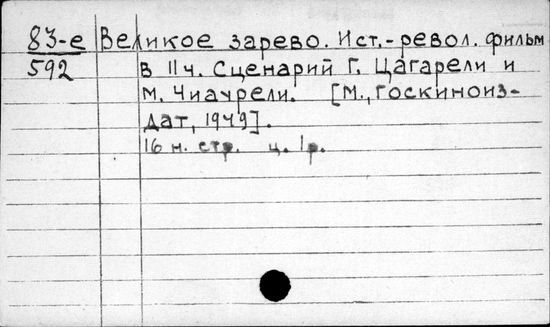 83-е Великое зарево. Ист.-револ. фильм
592 в 11 ч. Сценарий Г. Цагарели и
М. Чиаурели. [М., Госкиноиз-
дат, 1949].
16 н. стр. ц. 1р.